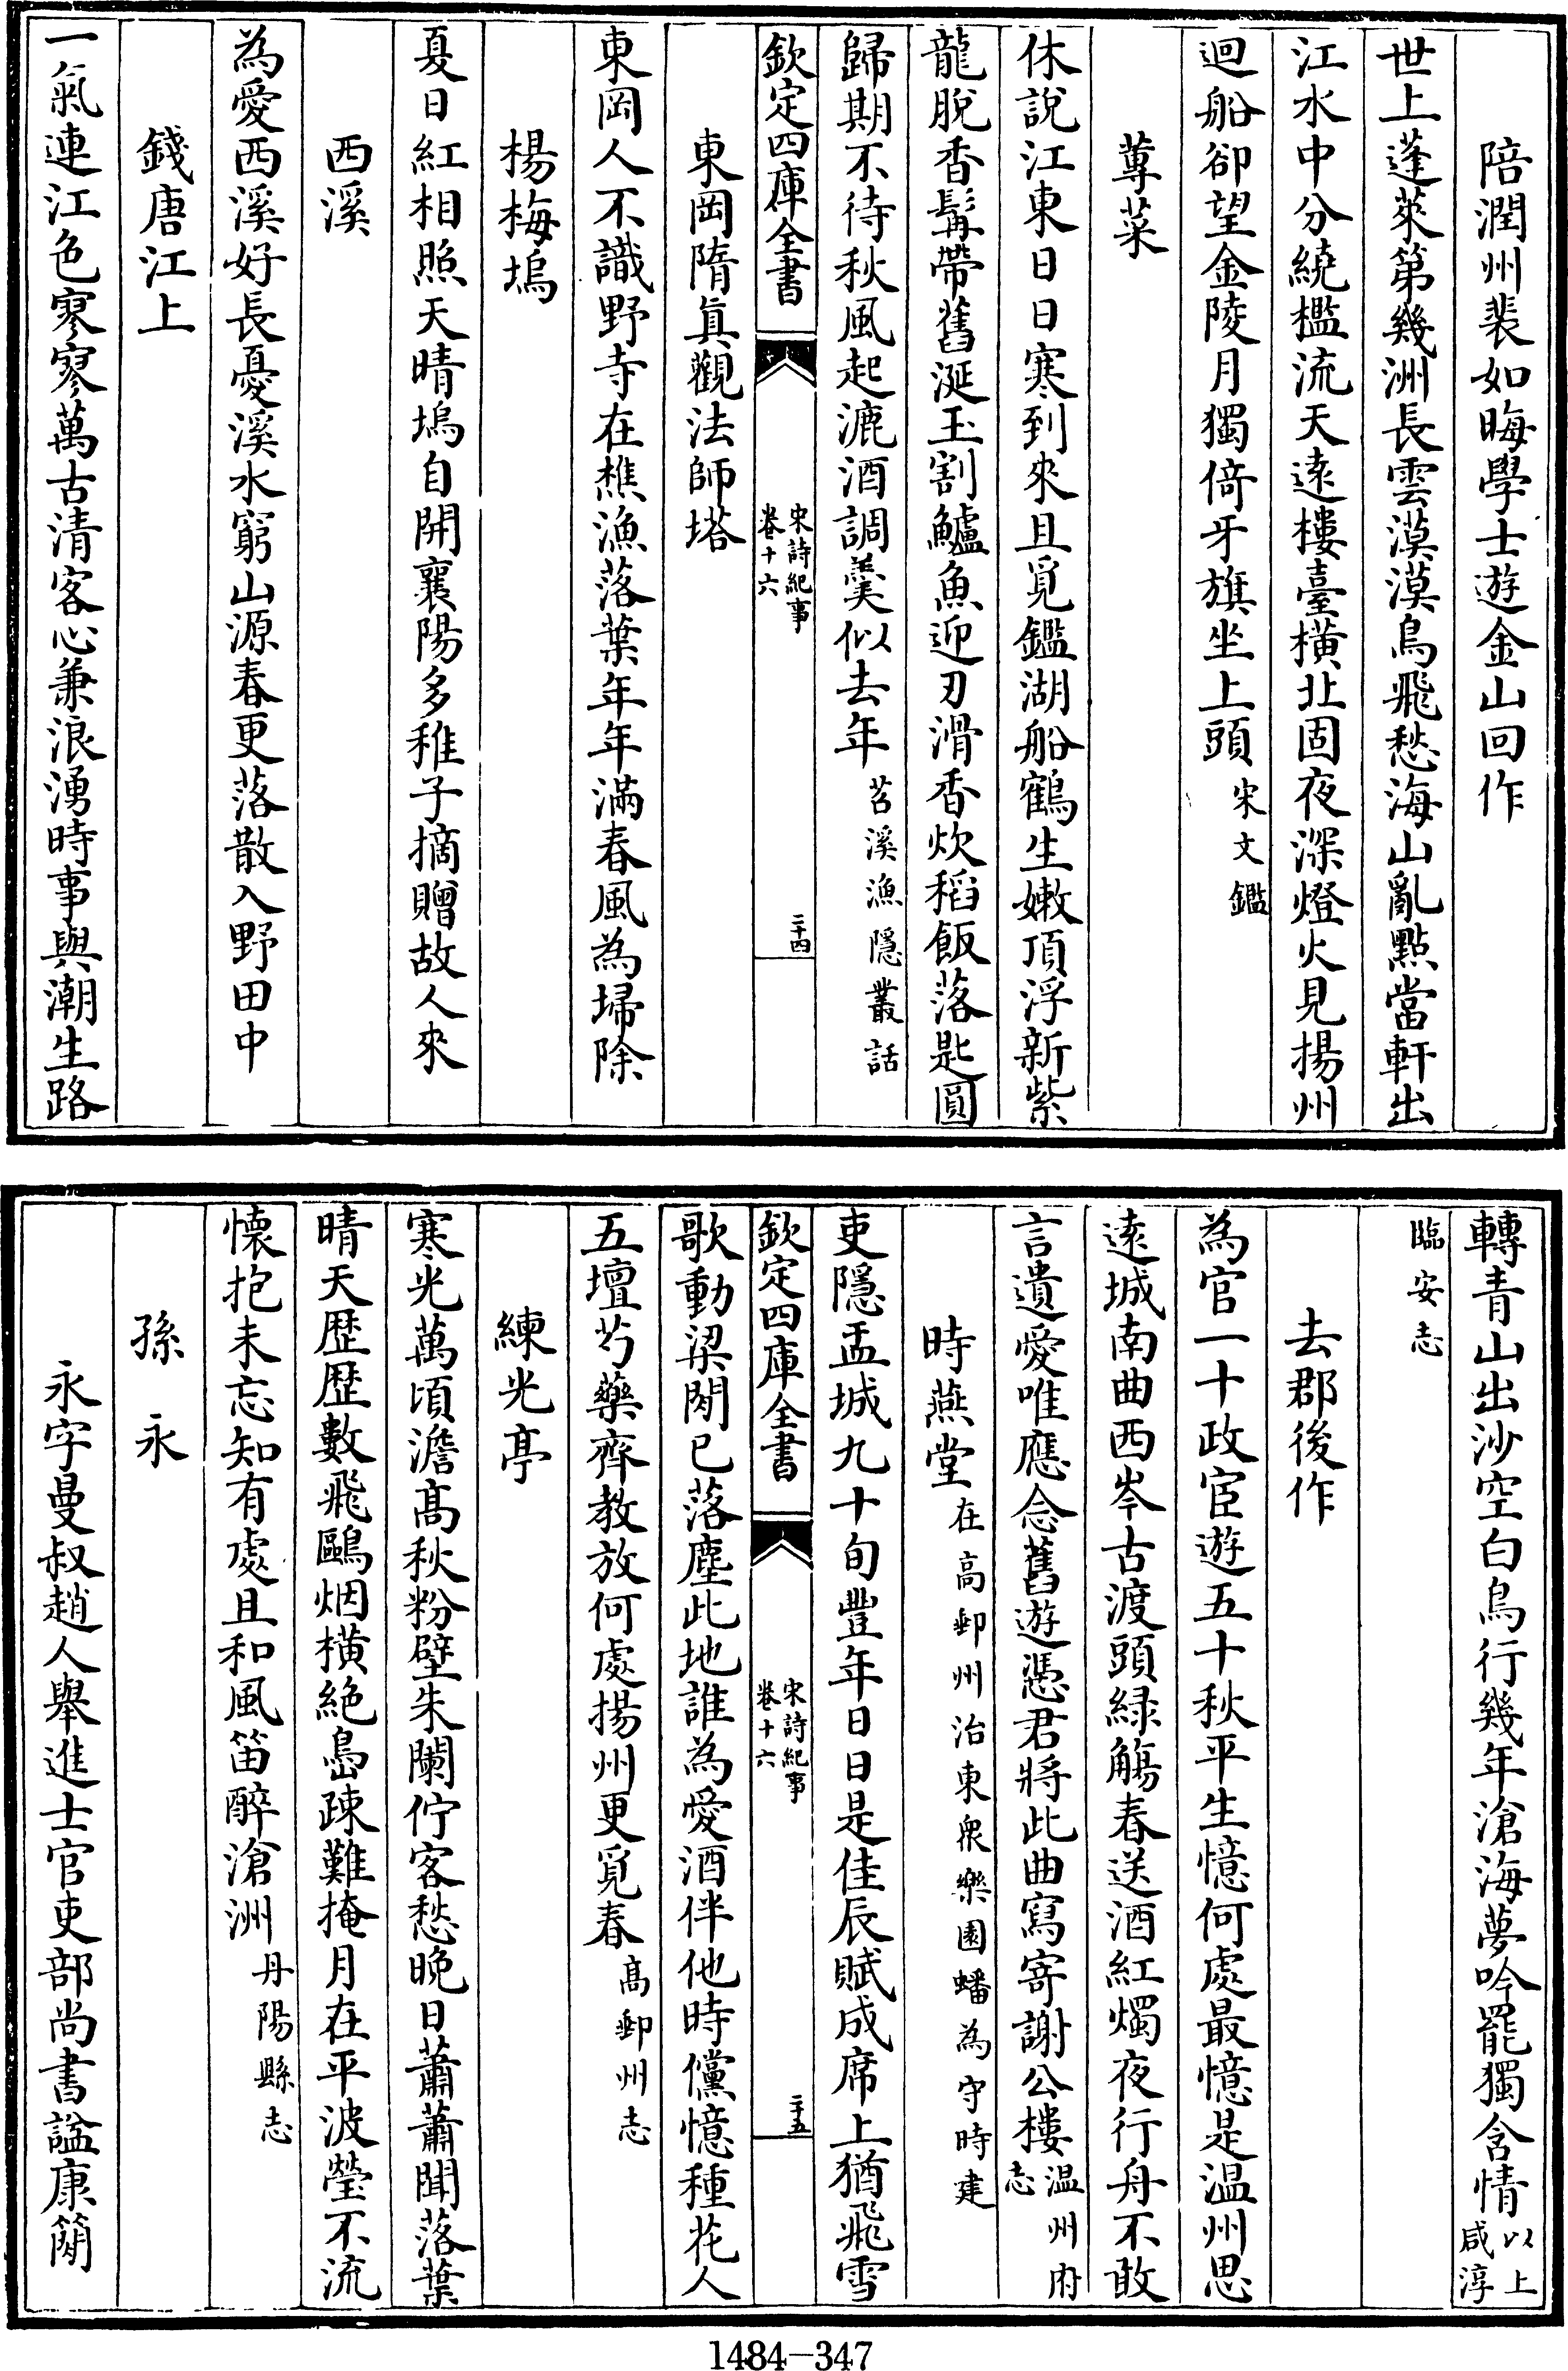 陪潤州裴如晦學士遊金山回作
世上蓬萊第幾洲長雲漠漠鳥飛愁海山亂點當軒出
江水中分繞檻流天遠樓臺橫北固夜深燈火見揚州
迴船卻望金陵月獨倚牙旗坐上頭宋文鑑
蓴菜
休說江東日日寒到來且覓鑑湖船鶴生嫩頂浮新紫
龍脫香髯帶舊涎玉割鱸魚迎刃滑香炊稻飯落匙圓
歸期不待秋風起漉酒調羹似去年苕溪漁隱叢話
欽定四庫全書
宋詩紀事
卷十六
二十四
東岡隋真觀法師塔
東岡人不識野寺在樵漁落葉年年滿春風為埽除
楊梅塢
夏日紅相照天晴塢自開襄陽多稚子摘贈故人來
西溪
為愛西溪好長憂溪水窮山源春更落散入野田中
錢唐江上
一氣連江色寥寥萬古清客心兼浪湧時事與潮生路
轉青山出沙空白鳥行幾年滄海夢吟罷獨含情以上咸淳
臨安志
去郡後作
為官一十政宦遊五十秋平生憶何處最憶是温州思
遠城南曲西岑古渡頭綠觴春送酒紅燭夜行舟不敢
言遺愛唯應念舊遊憑君將此曲寫寄謝公樓温州府志
時燕堂在高郵州治東衆樂園蟠為守時建
吏隱盂城九十旬豐年日日是佳辰賦成席上猶飛雪
欽定四庫全書
宋詩紀事
卷十六
二十五
歌動梁閒已落塵此地誰為愛酒伴他時儻憶種花人
五壇芍藥齊教放何處揚州更覓春高郵州志
練光亭
寒光萬頃澹高秋粉壁朱闌佇客愁晚日蕭蕭聞落葉
晴天歷歷數飛鷗烟橫絕島疎難掩月在平波瑩不流
懷抱未忘知有處且和風笛醉滄洲丹陽縣志
孫永
永字曼叔趙人舉進士官吏部尚書謚康簡
1484-347